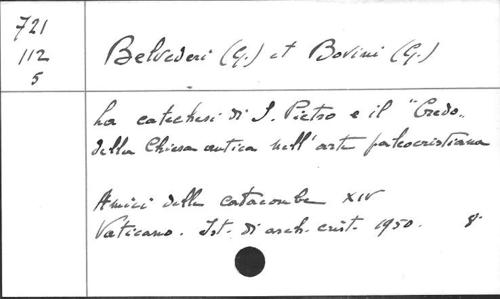 721
112
5
Belvederi (G.) et Bovini (G.)
La catechesi di S. Pietro e il "Credo"
della Chiesa antica nell'arte paleocristiana
Amici delle catacombe XIV
Vaticano. Ist. di arch. crist. 1950. 8°